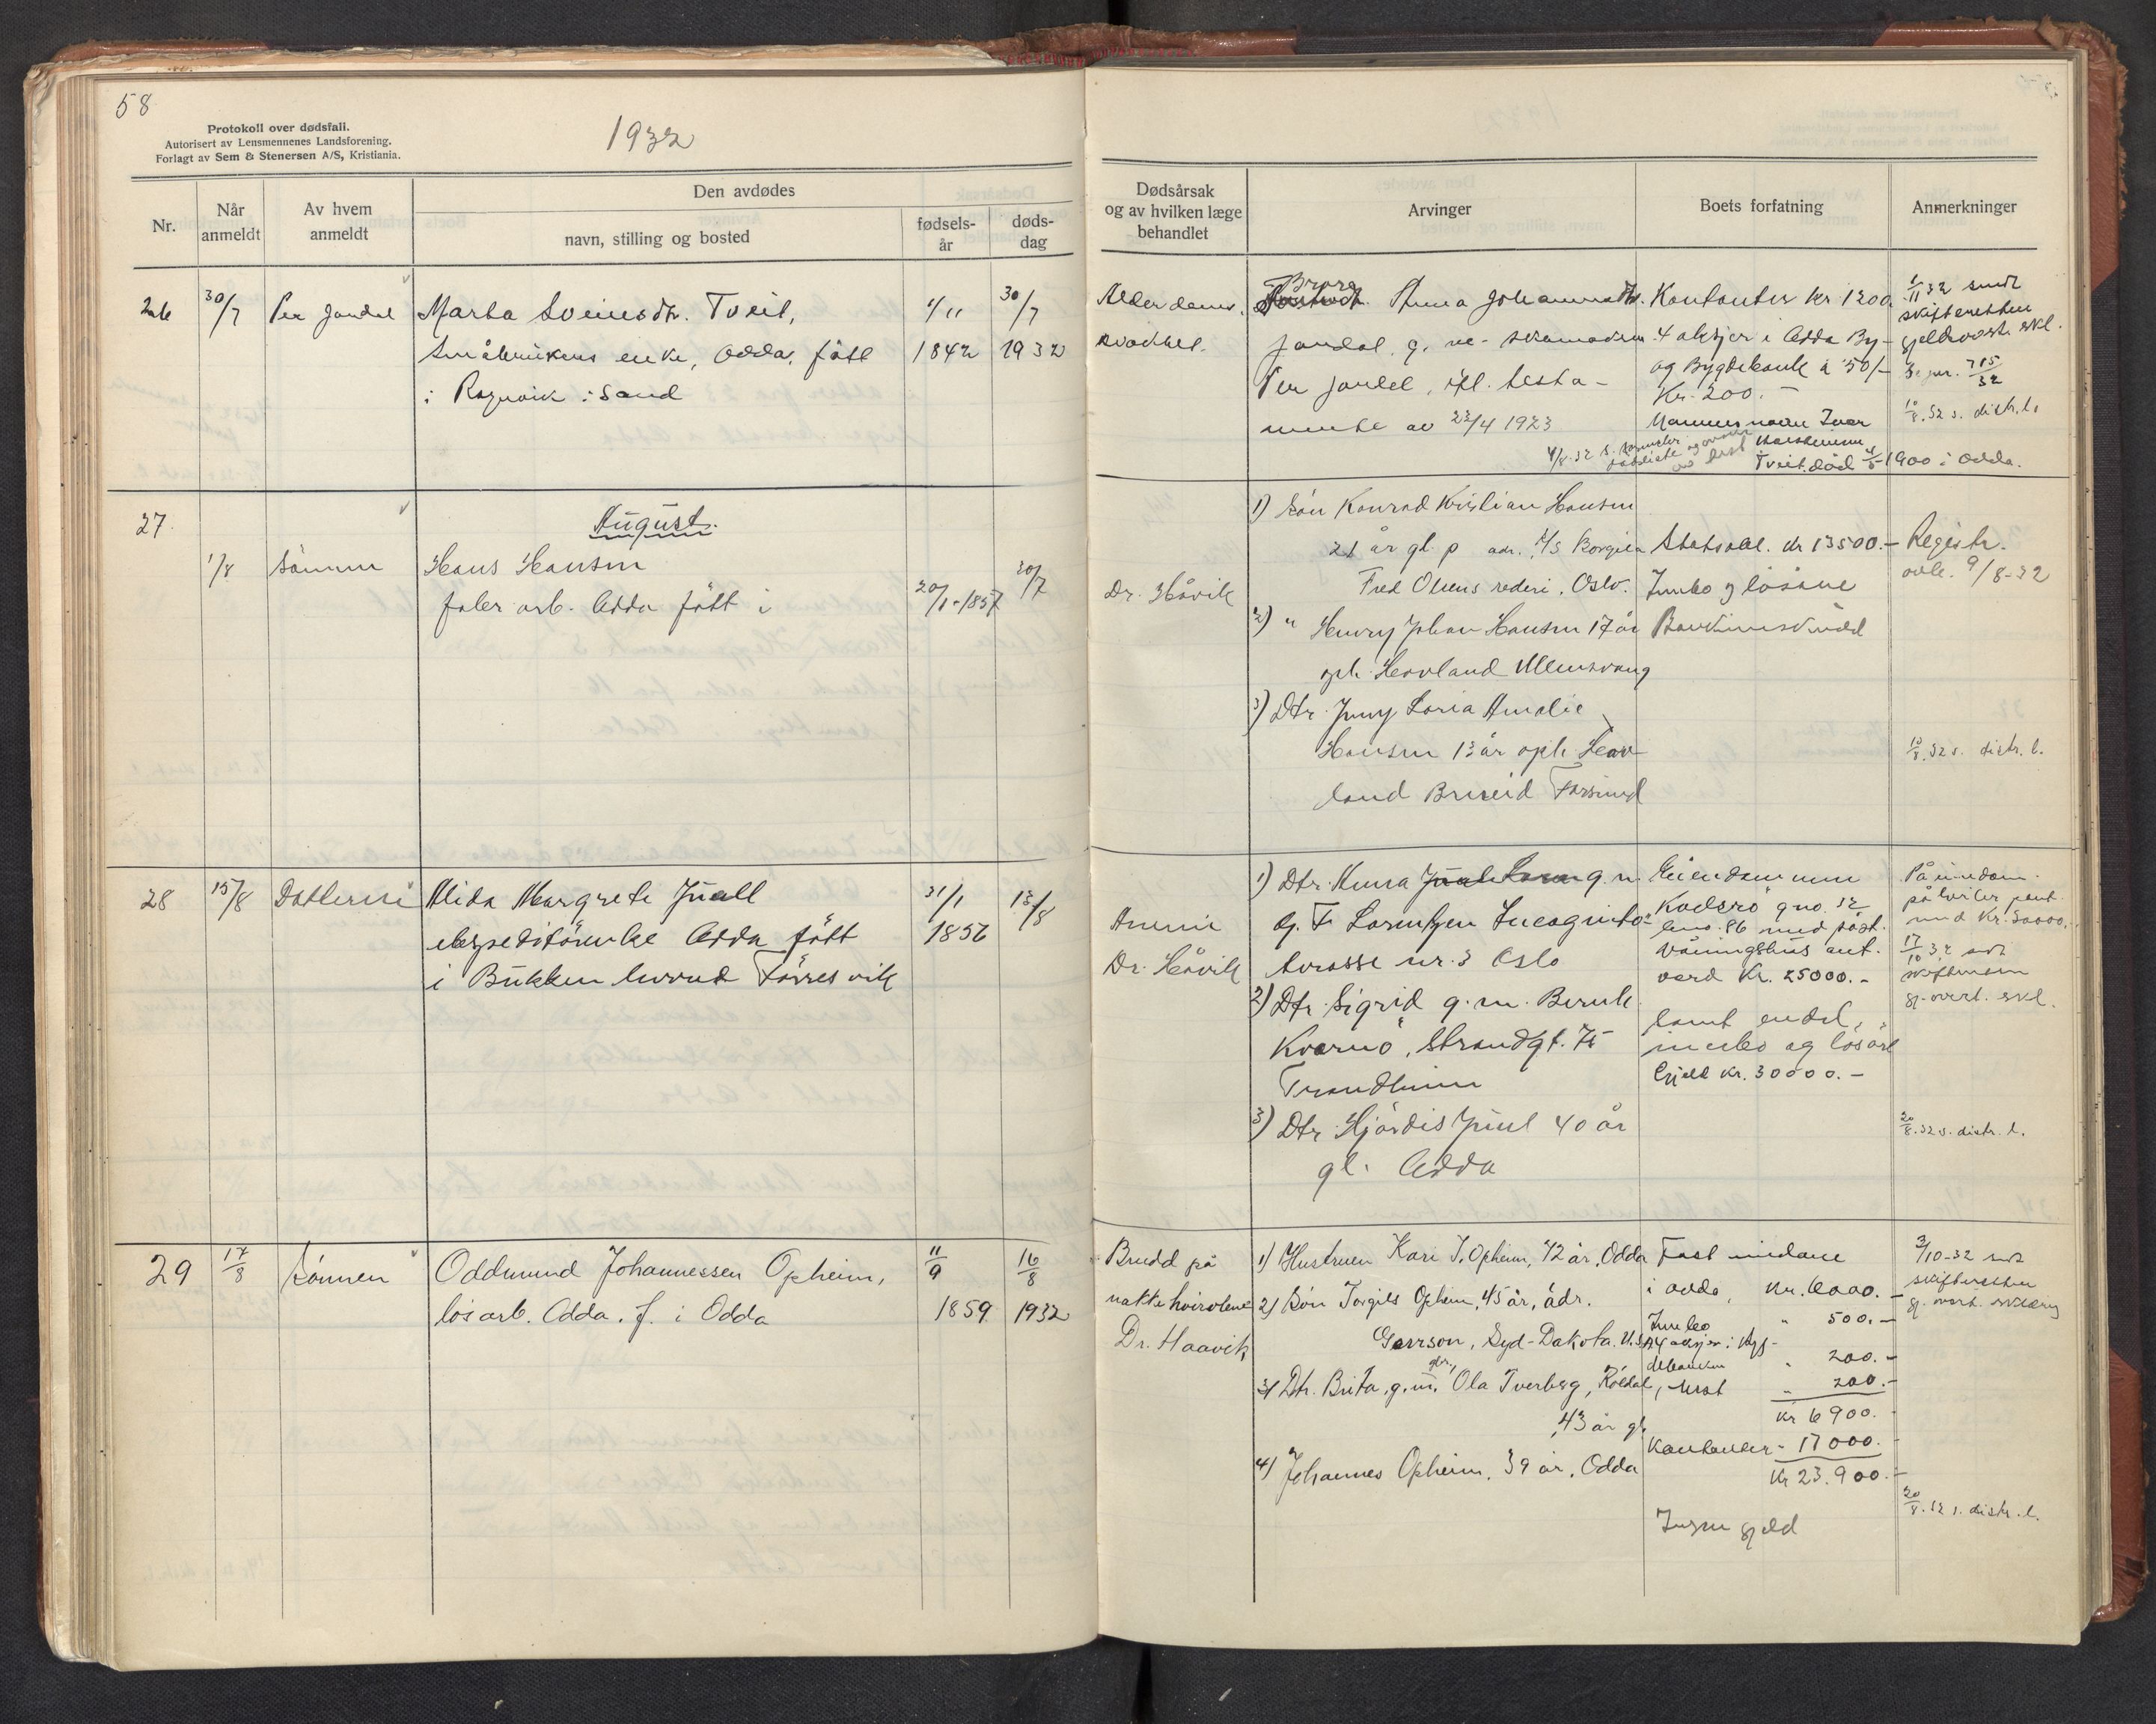 58
Protokoll over dødsfall.
Autorisert av Lensmennenes Landsforening.
Forlagt av Sem & Stenersen A/S, Kristiania.
1932
Nr.
Når anmeldt
Av hvem anmeldt
Den avdødes
navn, stilling og bosted
fødsels-år
døds-dag
Dødsårsak
og av hvilken læge
behandlet
Arvinger
Boets forfatning
Anmerkninger
26
30/7
Per Jondal
Marta Sveinsdtr. Tveit,
Småbrukers enke, Odda, født
i Ragnvik i Sand
4/11
1842
30/7
1932
Alderdoms-
svakhet.
Brors
Anna Johannesdtr.
Jondal, g. m.
Per Jondal, ifl. testa-
mente av 22/4 1923
Kontanter kr 1200
4 aksjer i Odda By-
og Bygdebank à 50/-
Kr. 200.-
Mannens navn Ivar
Tveit, død 1900 i Odda.
11 32 sendt
skifteretten
10/8.32 s. distr. l.
27.
August.
1/8
Sønnen
Hans Hansen
født i
20/1-1857
30/7
Dr. Håvik
1) Søn Konrad Kristian Hansen
21 år gl. p adr. M/S Borgila
Fred Olsens rederi. Oslo.
2) " Henry Johan Hansen 17 år
oph. Hovland Ullensvang
3) Dtr. Jenny Loria Amalie
Hansen 13 år oph. Hov-
land Farsund
kr 13500.-
Innbo og løsøre
Bankinnskudd
Registr.
avh. 9/8-32
10/8.32 s. distr. l.
28
15/8
Datteren
Alida Margrete Juell
ekspeditørenke Odda født
i Bukken
31/1
1856
13/8
Anemi
Dr. Håvik
1) Dtr. Anna g. m.
O. F. Lorentzen Incognito-
terasse nr. 3 Oslo
2) Dtr. Sigrid g. m. Bernh.
Kvernø, Strandgt. 75
Trondheim
3) Dtr. Hjørdis Juul 40 år
gl. Odda
Eiendommen
gno. 32
bno. 86 med påst.
våningshus ant.
verd Kr. 25000.-
samt endel
innbo og løsøre
Gjeld Kr. 30000.-
På eiendom.
påhviler pant.
med Kr. 30000.
17/10 32 sendt
skifteretten
20/8.32 s. distr. l.
29
17/8
Sønnen
Oddmund Johannessen Opheim,
løsarb. Odda. f. i Odda
11/9
1859
16/8
1932
Brudd på
nakkehvirvlene
Dr. Haavik
1) Hustruen Kari T. Opheim, 72 år, Odda
2) Søn Torgils Opheim, 45 år, adr.
Garrson, Syd-Dakota. U.S.A.
3) Dtr. Brita, g.m. gbr. Ola Tverberg, Røldal,
43 år gl.
4) Johannes Opheim, 39 år, Odda
Fast eiendom
i Odda, Kr. 6000.-
Innbo " 500.-
4 aksjer i Byg-
debanken " 200.-
" 200.-
Kr 6900.-
Kontanter - 17000.-
Kr 23.900.-
Ingen gjeld
3/10-32 sendt
skifteretten
20/8.32 s. distr. l.